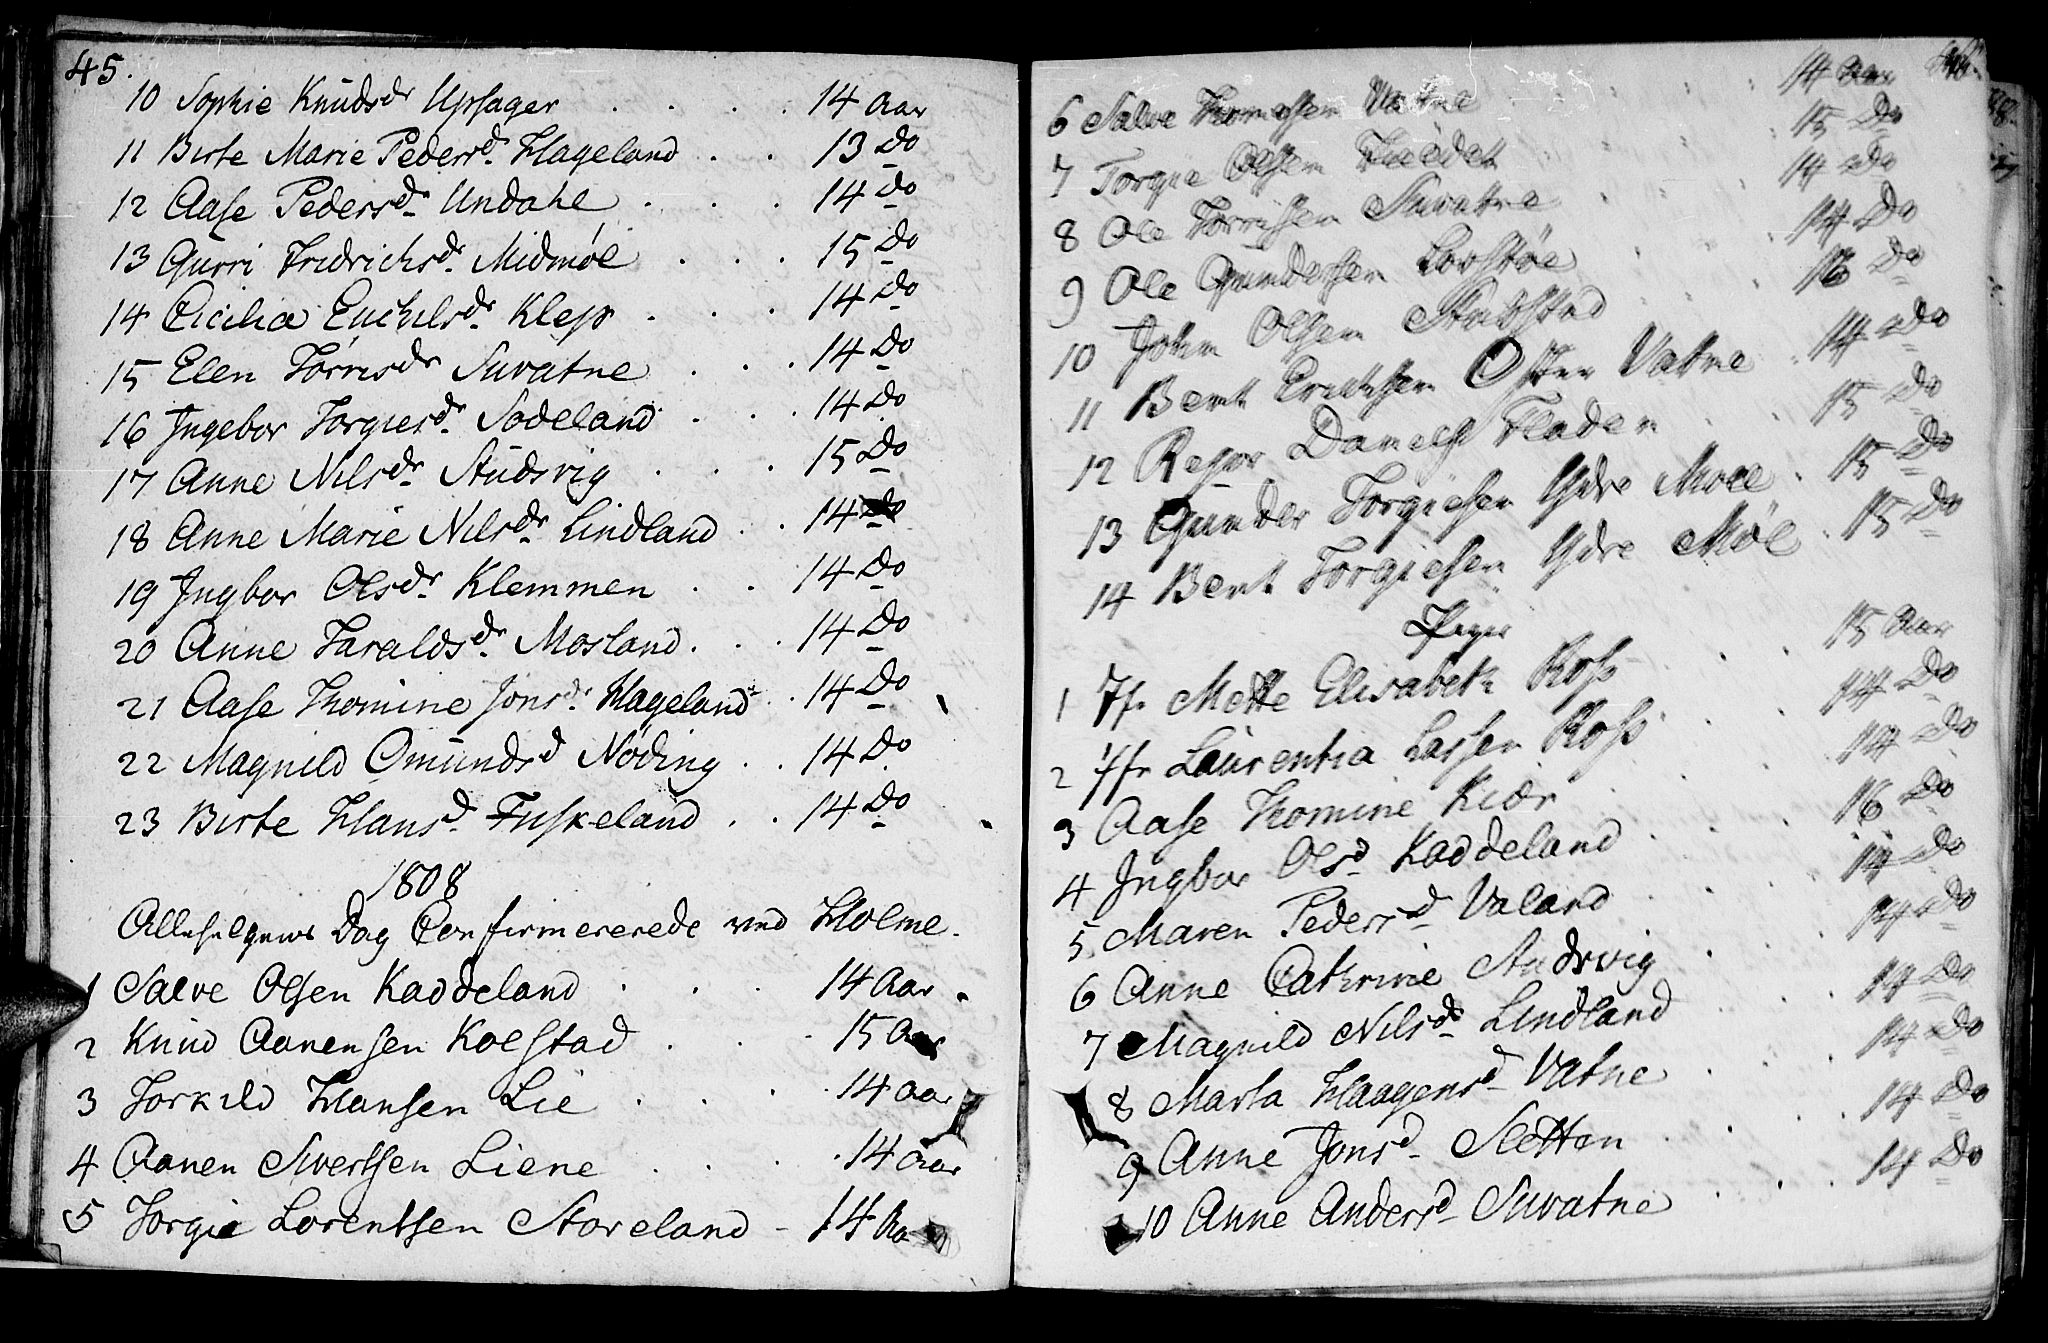 45.
10 Sophie Knudsdr Upsager . . . . 14 Aar
11 Birte Marie Pedersd. Hageland . . 13 Do
12 Aase Pedersdr. Undahl . . . 14 Do
13 Gurri Fridrichsd. Midmøl . . . 15 Do
14 Cicilia Enchelsdr. Klep . . . 14 Do
15 Elen Tørrisdr Suvatne . . . 14 Do
16 Ingebor Torgiesdr. Sodeland . . . 14 Do
17 Anne Nilsdr. Studsvig . . . 15 Do
18 Anne Marie Nilsdr. Lindland . . 14 Do
19 Ingbor Olsdr. Klemmen . . 14 Do
20 Anne Taraldsdr. Mosland . . . 14 Do
21 Aase Thomine Jonsdr. Hageland . . 14 Do
22 Magnild Omundsd Nøding . . 14 Do
23 Birte Hansd. Fuskeland . . 14 Do
1808
Allehelgens Dag Confirmererede ved Holme.
1 Salve Olsen Kaddeland . . . 14 Aar
2 Knud Aanensen Kolstad . . . 15 Aar
3 Torkild Hansen Lie . . . 14 Aar
4 Aanen Sivertsen Liene . . . 14 Aar
5 Torgie Lorentsen Storeland - 14 Aa
6 Salve Thomesen Vatne . . 14 Aar
7 Torgie Olsen . . 15 Do
8 Ole Tørrisen Suvatne . . 14 Do
9 Ole Gundersen . . 14 Do
10 John Olsen Stubstad . . 16 Do
11 Bent Erichsen Øster Vatne . 14 Do
12 Daniels Fladen . . 15 Do
13 Gunder Torgiesen Ydre Møll . 15 Do
14 Bent Torgiesen Ydre Møl . 15 Do
Piger
1 Jfr Mette Elisabeth Ross . . 15 Aar
2 Jfr Laurentia Lassen Ross . . 14 Do
3 Aase Thomine Kiær . . 14 Do
4 Ingbor Olsd. Kaddeland . . . 16 Do
5 Maren Pedersd Valand . . . 14 Do
6 Anne Cathrine Studsvig . . 14 Do
7 Magnild Nilsdr. Lindland . . 14 Do
8 Marta Haagensd. Vatne . . 14 Do
9 Anne Jonsd. Sletten . . . 14 Do
10 Anne Andersd. Suvatne . . . 14 Do